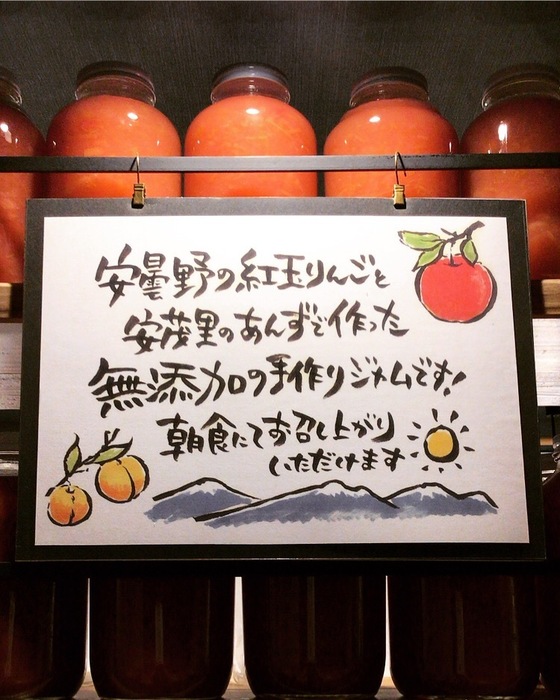 安曇野の紅玉りんごと
安茂里のあんずで作った
無添加の手作りジャムです!
朝食にてお召し上がり
いただけます